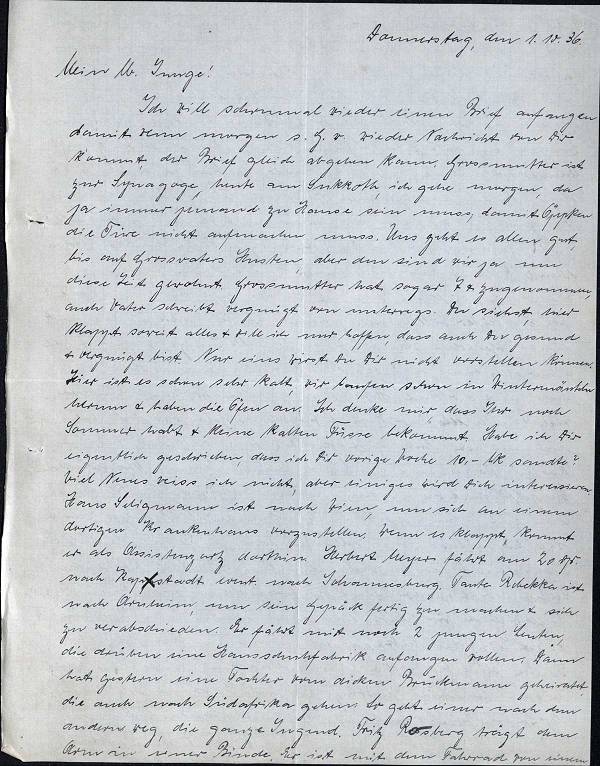 Donnerstag, den 1.10.36.
Mein lb. Junge!
Ich will schonmal wieder einen Brief anfangen
damit wenn morgen s. G. w. wieder Nachricht von Dir
kommt, der Brief gleich abgehen kann. Grossmutter ist
zur Synagoge, heute am Sukkoth, ich gehe morgen, da
ja immer jemand zu Hause sein muss, damit Öppken
die Türe nicht aufmachen muss. Uns geht es allen gut
bis auf Grossvaters Husten, aber den sind wir ja um
diese Zeit gewohnt. Grossmutter hat sogar 7 & zugenommen,
auch Vater schreibt vergnügt von unterwegs. Du siehst, hier
klappt soweit alles & will ich nur hoffen, dass auch Du gesund
& vergnügt bist. Nur eins wirst Du Dir nicht vorstellen können.
Hier ist es schon sehr kalt, wir laufen schon in Wintermänteln
herum & haben die Öfen an. Ich denke mir, dass Ihr noch
Sommer habt & keine kalten Füsse bekommt. Habe ich Dir
eigentlich geschrieben, dass ich Dir vorige Woche 10,- Mk sandte?
Viel Neues weiss ich nicht, aber einiges wird Dich interessieren
Hans Seligmann ist nach Wien, um sich an einem
dortigen Krankenhaus vorzustellen. Wenn es klappt, kommt
er als Assistenzarzt dorthin. Herbert Meyer fährt am 20
nach Kapstadt event nach Johannesburg. Tante Rebekka ist
nach Arnheim, um sein Gepäck fertig zu machen & sich
zu verabschieden. Er fährt mit noch 2 jungen Leuten,
die drüben eine Hausschuhfabrik anfangen wollen. Dann
hat gestern eine Tochter vom dicken Brückmann geheiratet
die auch nach Südafrika gehen. So geht einer nach dem
andern weg, die ganze Jugend. Fritz Rosberg trägt den
Arm in einer Binde. Er ist mit dem Fahrrad von einem